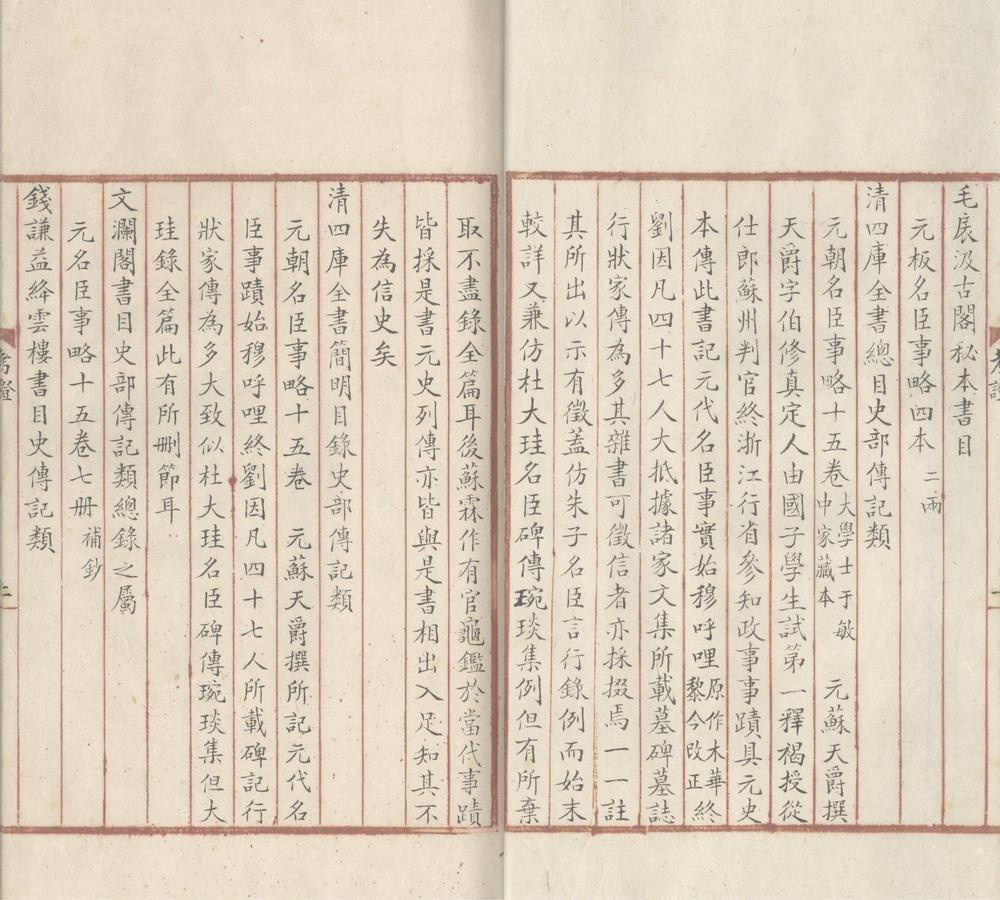 毛扆汲古閣秘本書目
元板名臣事略四本 二兩
清四庫全書總目史部傳記類
元朝名臣事略十五卷 大學士于敏中家藏本 元蘇天爵撰
天爵字伯修真定人由國子學生試第一釋褐授從
仕郎蘇州判官終浙江行省參知政事事蹟具元史
本傳此書記元代名臣事實始穆呼哩 原作木華黎今改正 終
劉因凡四十七人大抵據諸家文集所載墓碑墓誌
行狀家傳為多其雜書可徵信者亦採掇焉一一註
其所出以示有徵蓋仿朱子名臣言行錄例而始末
較詳又兼仿杜大珪名臣碑傳琬琰集例但有所棄
取不盡錄全篇耳後蘇霖作有官龜鑑於當代事蹟
皆採是書元史列傳亦皆與是書相出入足知其不
失為信史矣
清四庫全書簡明目錄史部傳記類
元朝名臣事略十五卷 元蘇天爵撰所記元代名
臣事蹟始穆呼哩終劉因凡四十七人所載碑記行
狀家傳為多大致似杜大珪名臣碑傳琬琰集但大
珪錄全篇此有所刪節耳
文瀾閣書目史部傳記類總錄之屬
元名臣事略十五卷七册 補鈔
錢謙益絳雲樓書目史傳記類